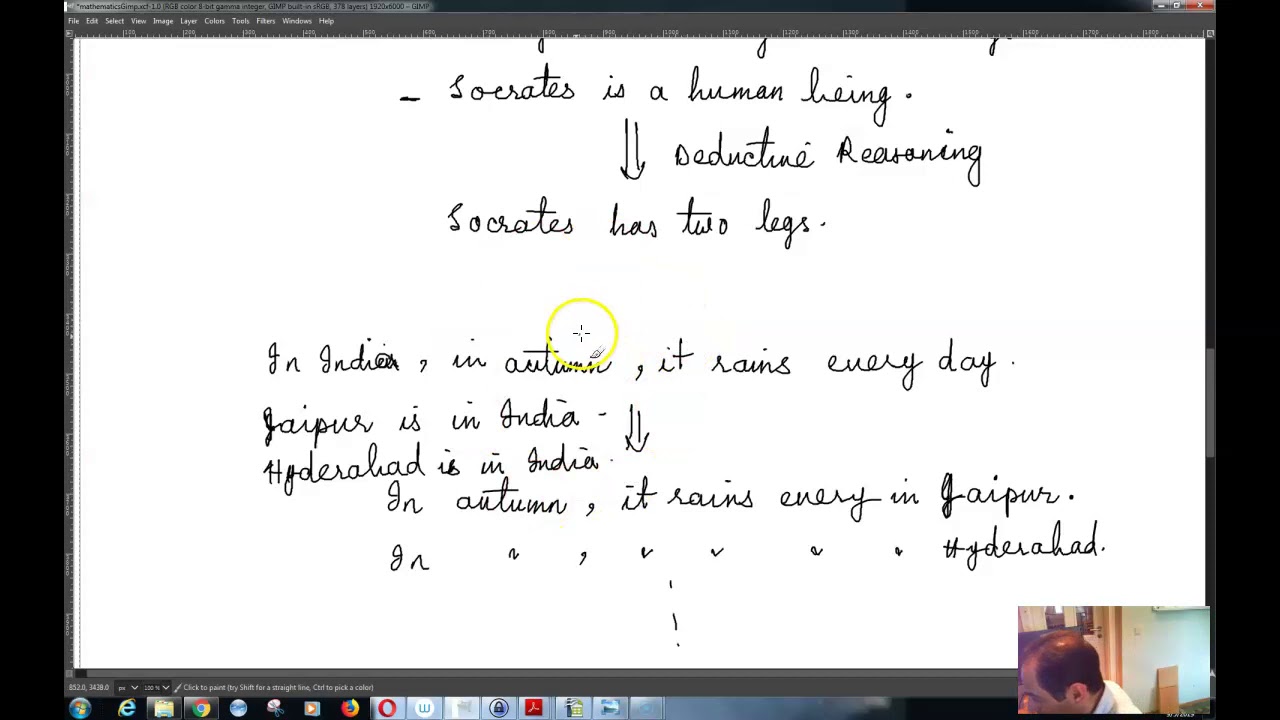 *mathematicsGimp.xcf-1.0 (RGB color 8-bit gamma integer, GIMP built-in sRGB, 378 layers) 1920x6000 – GIMP
File Edit Select View Image Layer Colors Tools Filters Windows Help
- Socrates is a human being.
⇓ Deductive Reasoning
Socrates has two legs.
In India, in autumn, it rains every day.
Jaipur is in India.
⇓
Hyderabad is in India.
In autumn, it rains every in Jaipur.
In " , " " " " Hyderabad.
852.0, 3438.0 px 100 % Click to paint (try Shift for a straight line, Ctrl to pick a color)